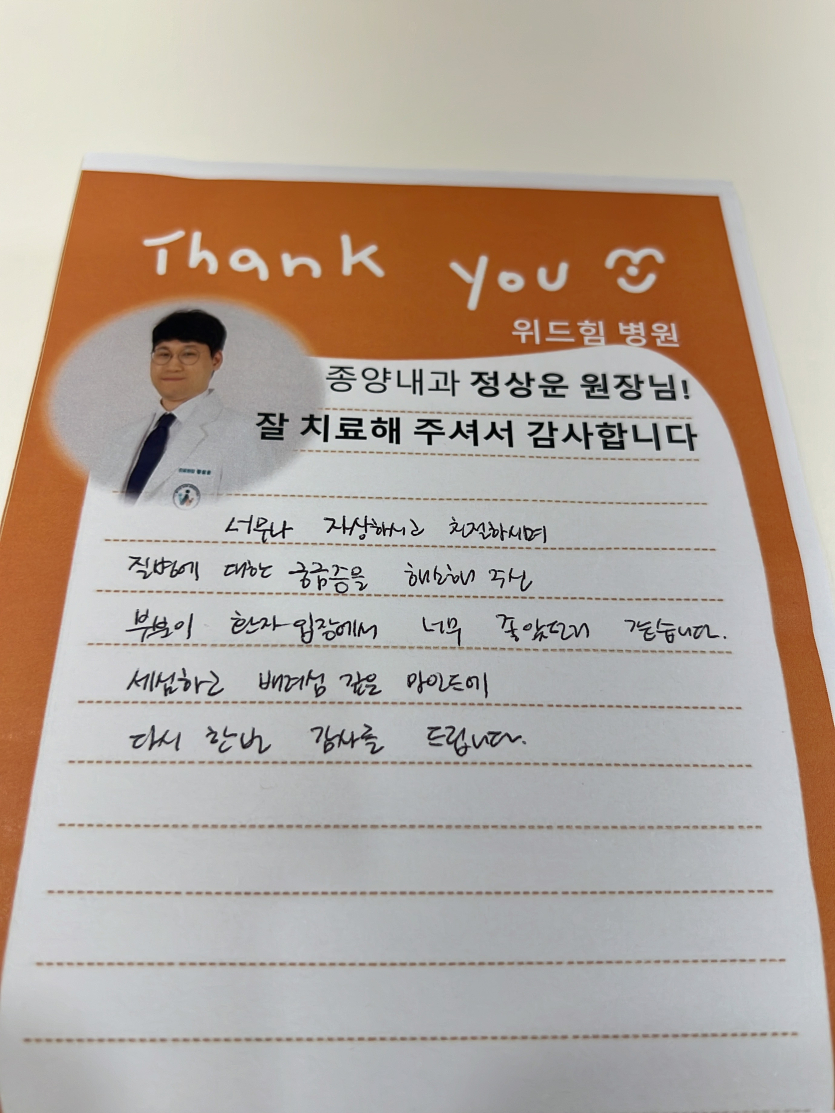 Thank you
위드힘 병원
종양내과 정상운 원장님!
잘 치료해 주셔서 감사합니다
너무나 자상하시고 친절하시며
질병에 대한 궁금증을 해소해 주신
부분이 환자 입장에서 너무 좋았던거 같습니다.
세심하고 배려심 깊은 마인드에
다시 한번 감사를 드립니다.